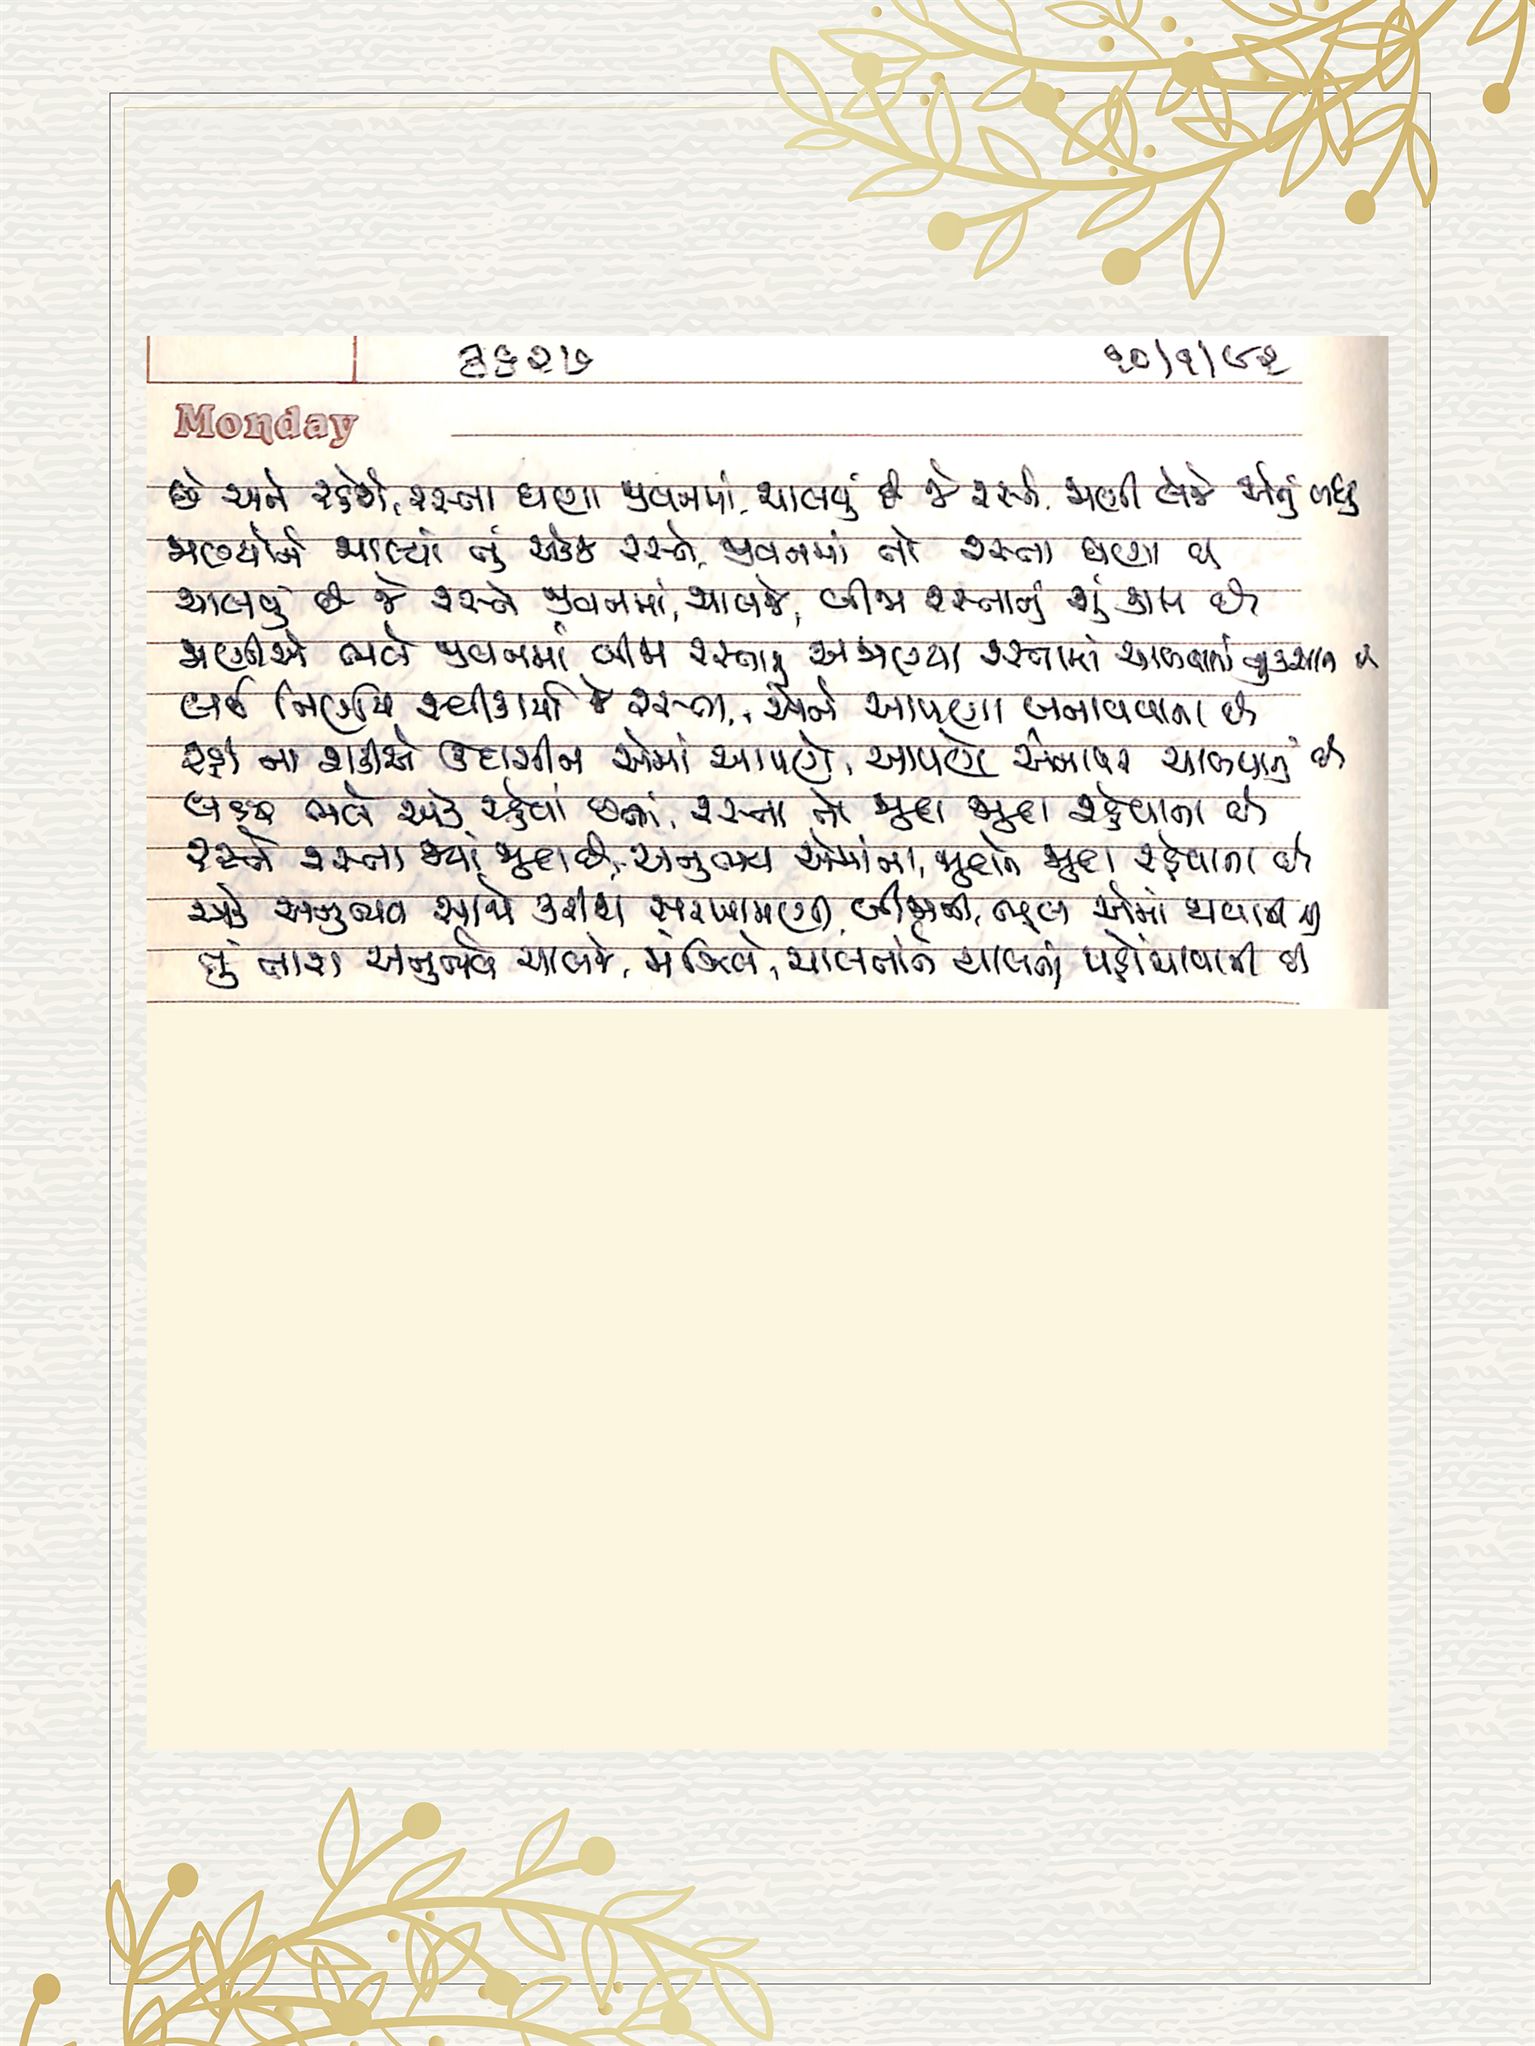 ૪૬૨૭ ૧૦/૧/૯૨
Monday
છે અને રહેશે, રસ્તા ઘણા જીવનમાં, ચાલવું છે જે રસ્તે, જાણી લેજે એનું બધું
ચાલ્યાં તું એક રસ્તે, જીવનમાં તો રસ્તા ઘણા છે
ચાલવું છે જે રસ્તે જીવનમાં, ચાલજે, બીજા રસ્તાનું શું કામ છે
જાણીએ ભલે જીવનમાં બીજા રસ્તા, અજાણ્યા રસ્તામાં ચાલવામાં નુકસાન છે
લઈ નિર્ણય સ્વીકાર્યા જે રસ્તા, એને આપણા બનાવવાના છે
રહી ના શકીએ ઉદાસીન એમાં આપણે, આપણે એના પર ચાલવાનું છે
લક્ષ્ય ભલે એક રહેવા છતાં, રસ્તા તો જુદા જુદા રહેવાના છે
રસ્તે રસ્તા જ્યાં જુદા છે, અનુભવ એમાંના, જુદાને જુદા રહેવાના છે
એક અનુભવ સાથે કરીશ સરખામણી બીજાની, ભૂલ એમાં થવાની છે
તું તારા અનુભવે ચાલજે, મંઝિલે, ચાલતાં ને ચાલતાં પહોંચવાની છે